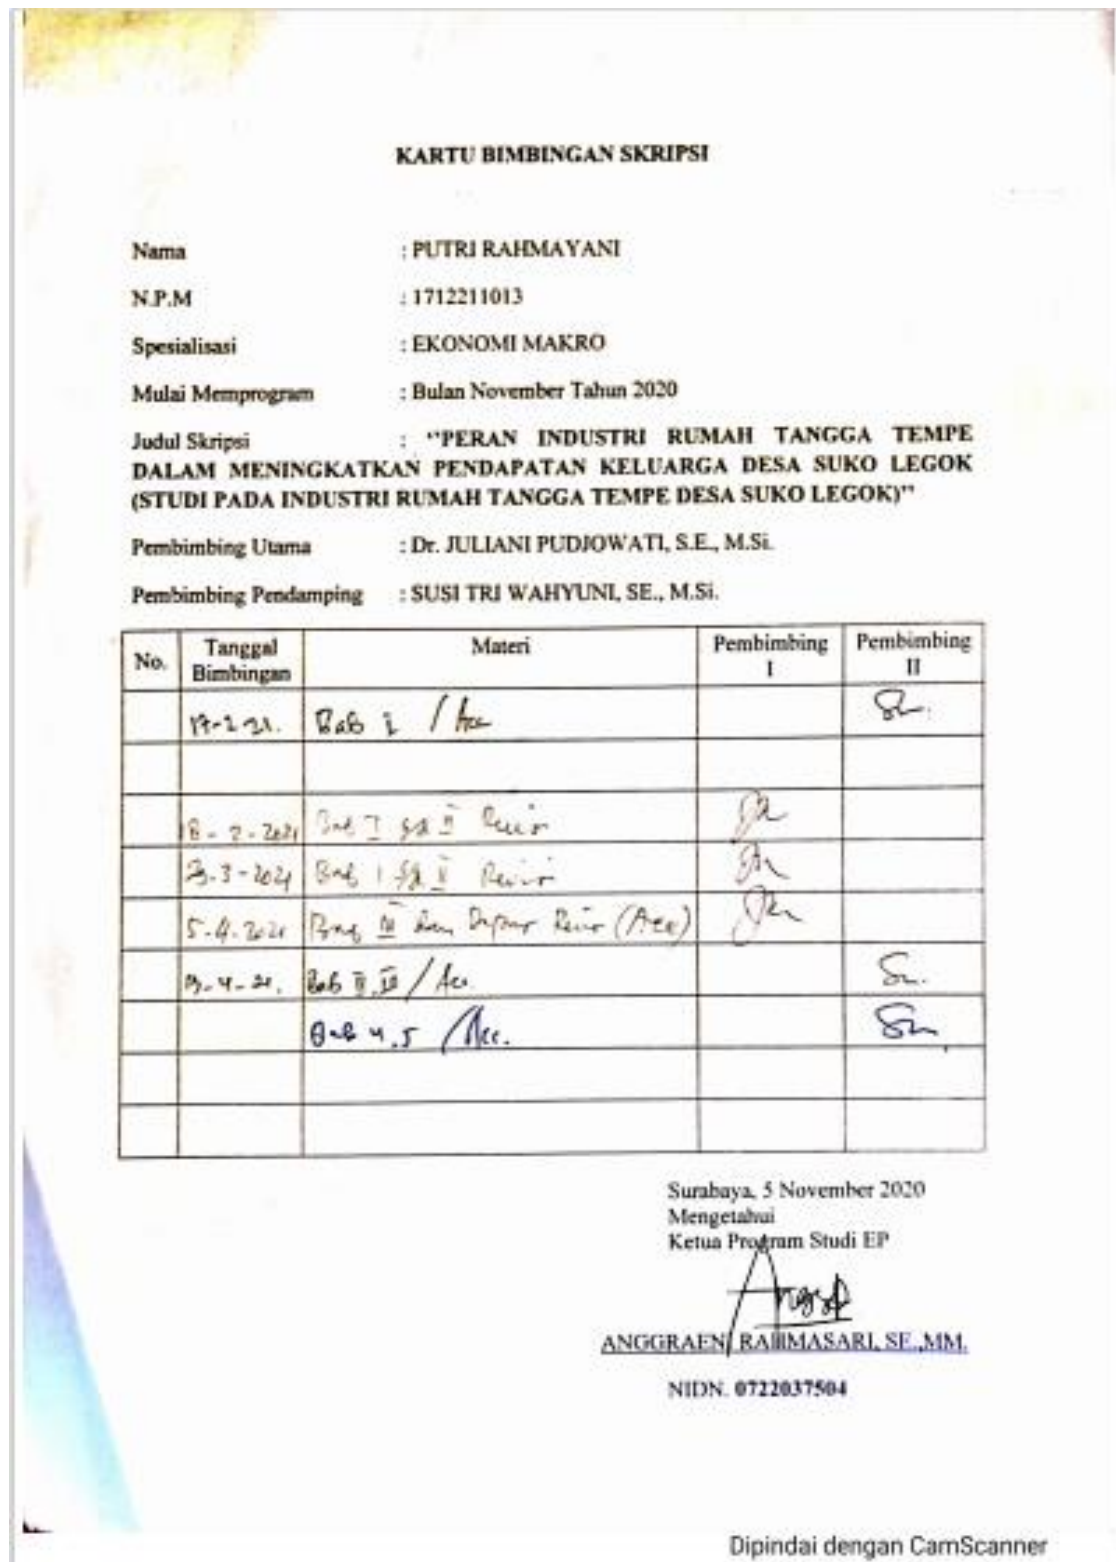 KARTU BIMBINGAN SKRIPSI
Nama : PUTRI RAHMAYANI
N.P.M : 1712211013
Spesialisasi : EKONOMI MAKRO
Mulai Memprogram : Bulan November Tahun 2020
Judul Skripsi : "PERAN INDUSTRI RUMAH TANGGA TEMPE
DALAM MENINGKATKAN PENDAPATAN KELUARGA DESA SUKO LEGOK
(STUDI PADA INDUSTRI RUMAH TANGGA TEMPE DESA SUKO LEGOK)"
Pembimbing Utama : Dr. JULIANI PUDJOWATI, S.E., M.Si.
Pembimbing Pendamping : SUSI TRI WAHYUNI, SE., M.Si.
No. Tanggal Bimbingan Materi Pembimbing I Pembimbing II
Bab I / Acc
8-2-2021 Bab I sd II Revisi
3-2021 Bab I sd II Revisi
5-4-2021 Bab III dan Revisi (Acc)
Bab II, III / Acc.
Bab 4,5 / Acc.
Surabaya, 5 November 2020
Mengetahui
Ketua Program Studi EP
ANGGRAENI RAHMASARI, SE.,MM.
NIDN. 0722037504
Dipindai dengan CamScanner